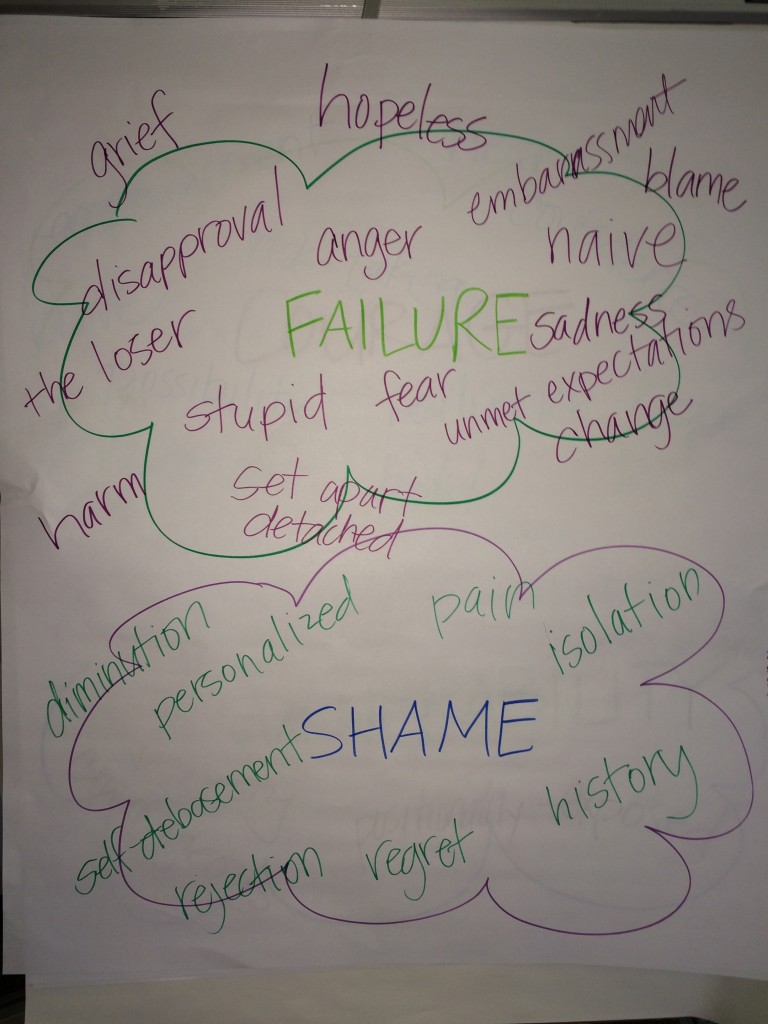 grief
hopeless
embarrassment
blame
disapproval
anger
naive
FAILURE
sadness
the loser
stupid
fear
unmet expectations
change
harm
set apart
detached
diminution
personalized
pain
isolation
SHAME
self-debasement
history
rejection
regret